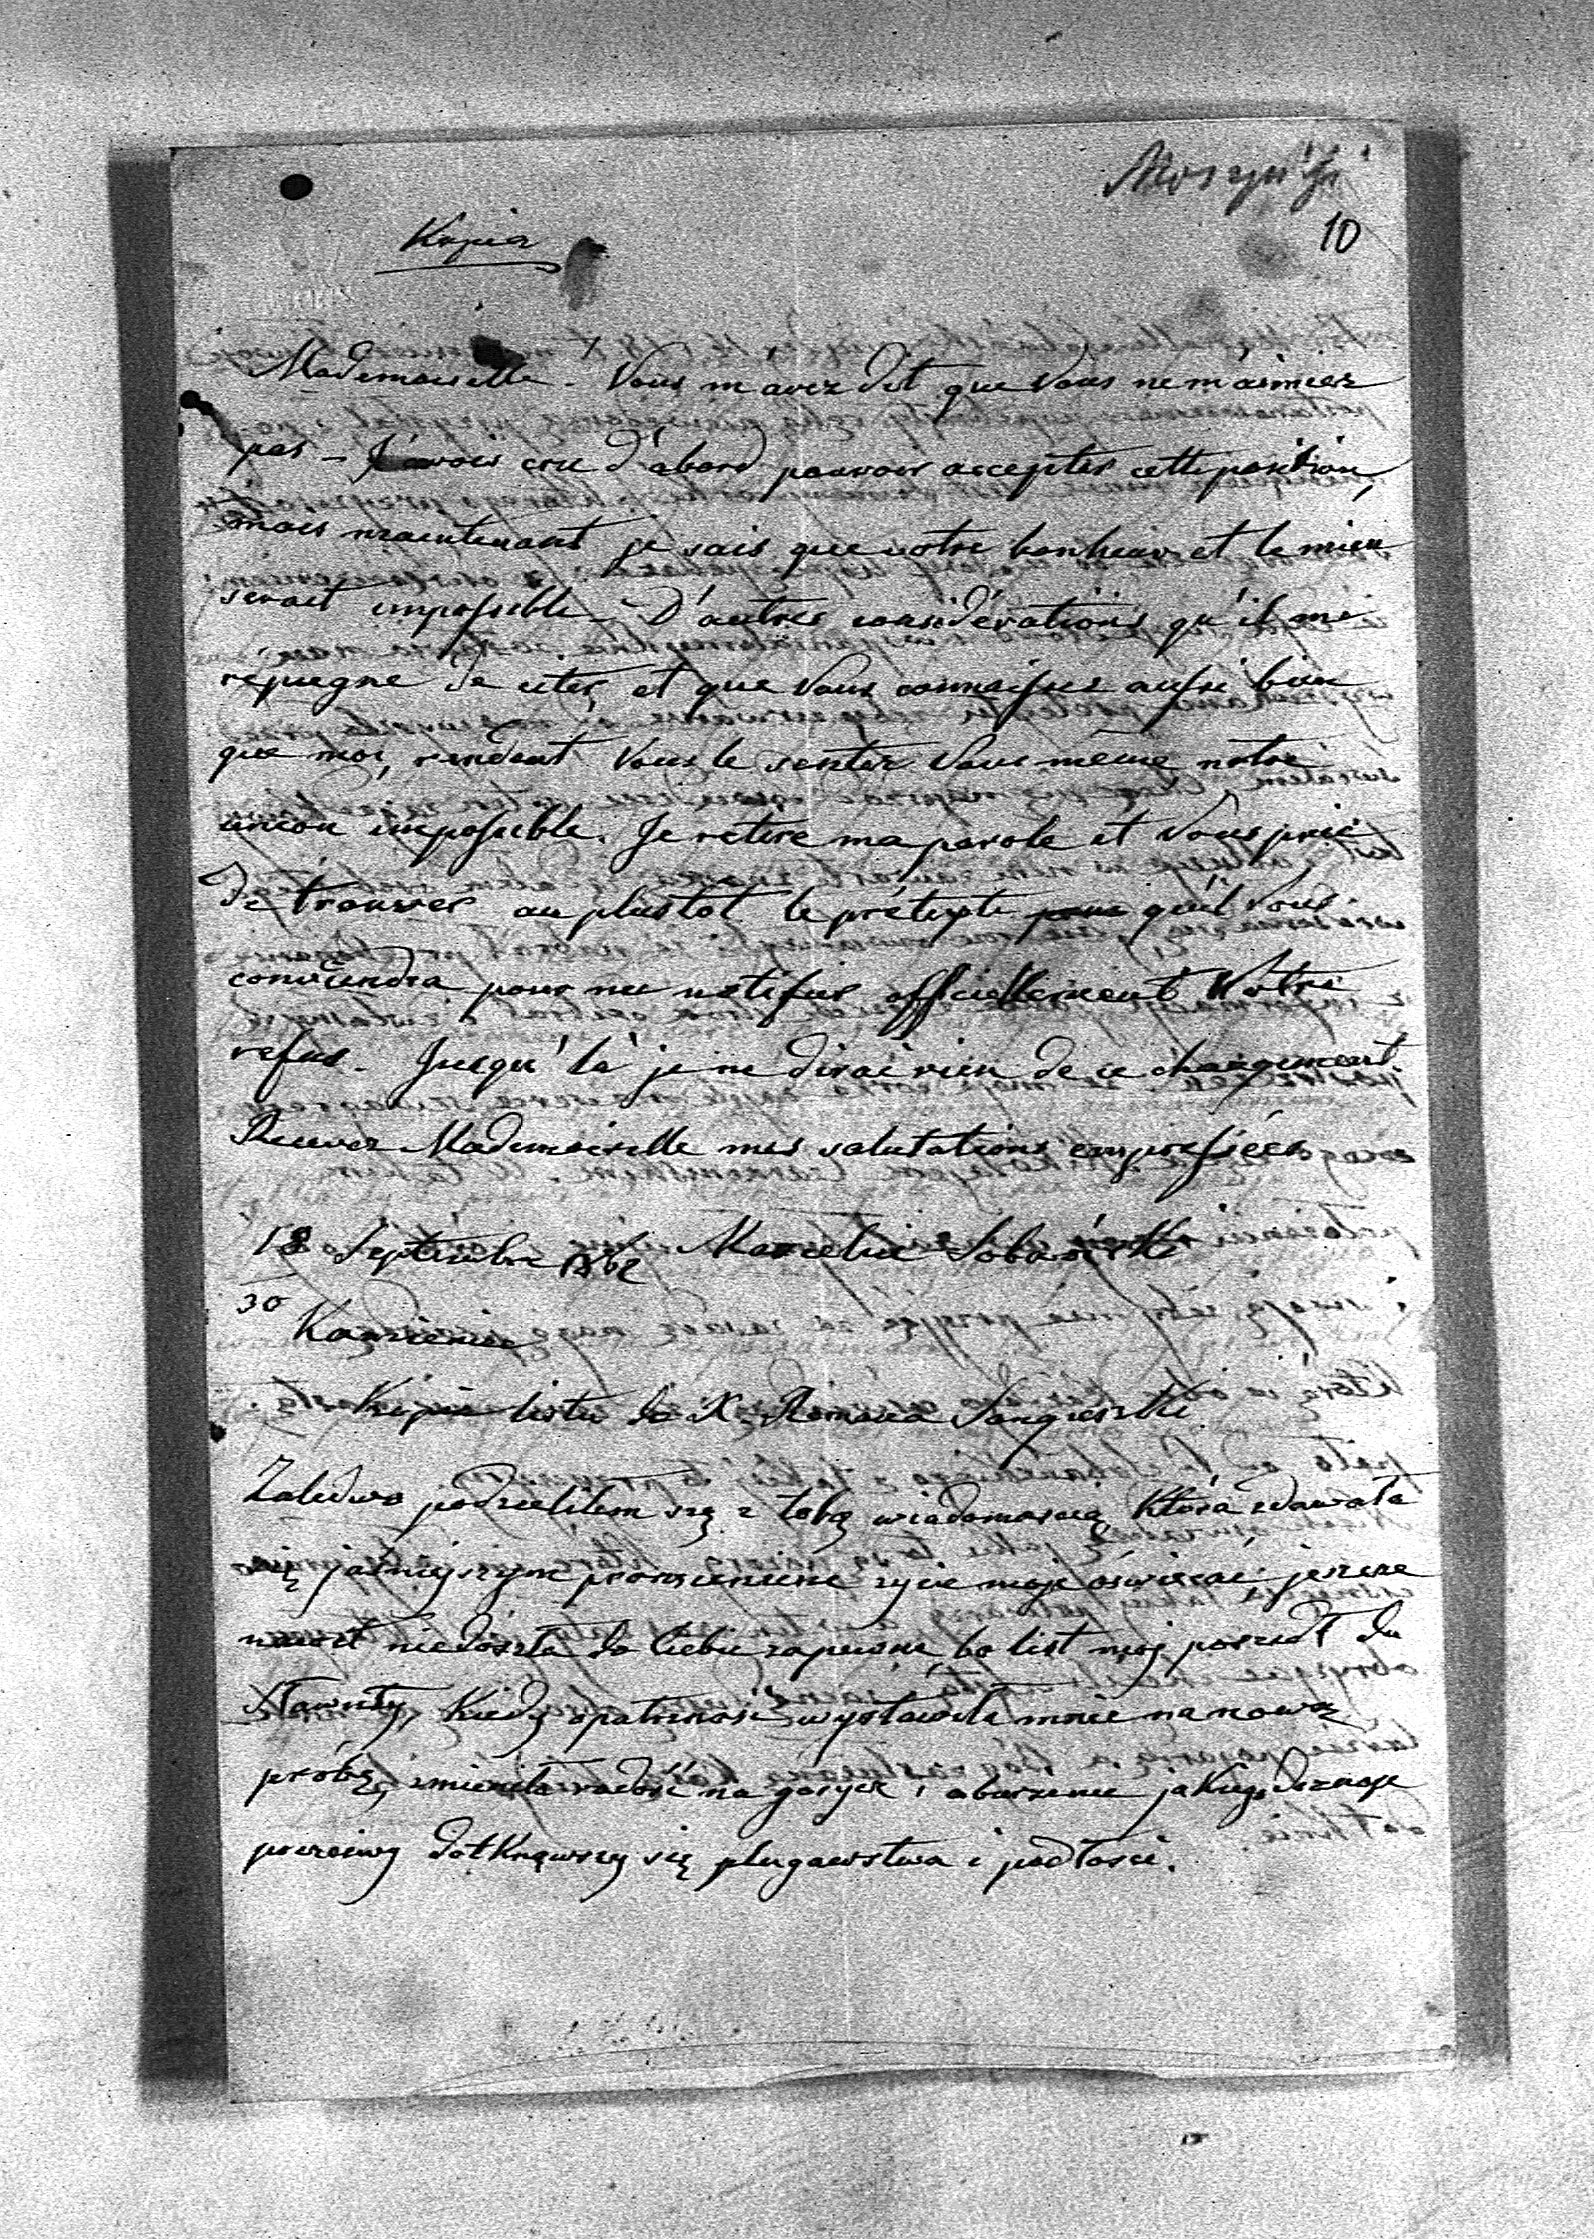 Moszyński
10
Kopia
Mademoiselle. Vous m'avez dit que Vous ne m'aimiez
pas – J'avois cru d'abord pouvoir accepter cette position,
mais maintenant je sais que votre bonheur et le mien
serait impossible – D'autres considérations qu'il me
repugne de citer et que Vous connaissez aussi bien
que moi, rendent Vous le sentez Vous même notre
union impossible. Je retire ma parole et Vous prie
de trouver au plustôt le prétexte qu'il Vous
conviendra pour me notifier officiellement Votre
refus. Jusqu'là je ne dirai rien de ce changement.
Recevez Mademoiselle mes salutations empressées
18 Septembre 1862 Marcelin Sobański
30
Kamieniec
Kopia listu do X. Romana Sanguszki
Zaledwo podzieliłem się z tobą wiadomością która zdawała
się jaśniejszym promieniem życie moje oświecać jeszcze
nawet niedoszła do Ciebie zapewne bo list mój poszedł do
Sławuty, kiedy opatrzność wystawiła mnie na nową
próbę, zmieniła radość na gorycz i oburzenie jakiego doznaje
poczciwy dotknąwszy się plugawstwa i podłości.